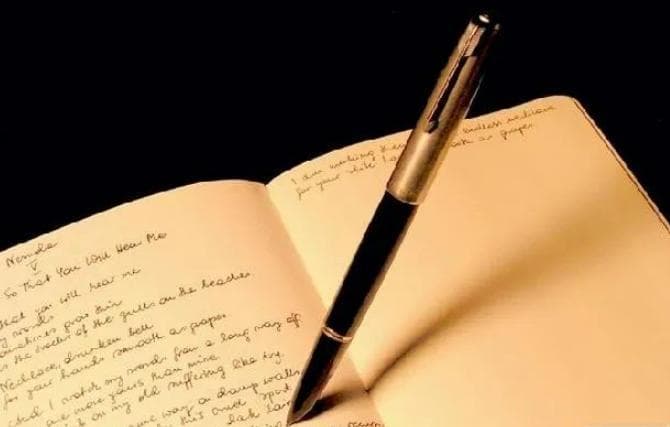 Neruda
V
So that You Will Hear Me
that you will hear me
my words
sometimes grow thin
as the tracks of the gulls on the beaches
Necklace, drunken bell
for your hands smooth as grapes.
And I watch my words from a long way off
are more yours than mine
on my old suffering like ivy.
same way on damp walls
this cruel sport
dark lair
I am making them endless necklace
for your white hands, smooth as grapes